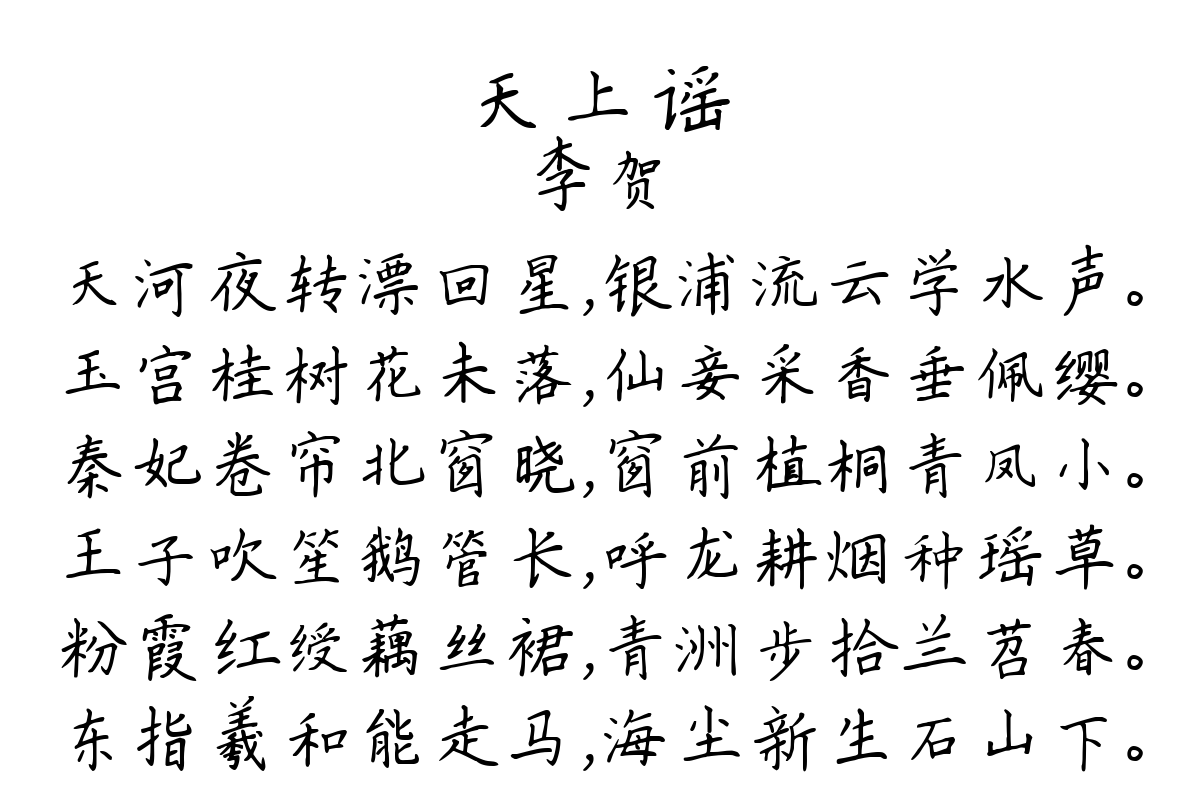 天上谣
李贺
天河夜转漂回星,银浦流云学水声。
玉宫桂树花未落,仙妾采香垂佩缨。
秦妃卷帘北窗晓,窗前植桐青凤小。
王子吹笙鹅管长,呼龙耕烟种瑶草。
粉霞红绶藕丝裙,青洲步拾兰苕春。
东指羲和能走马,海尘新生石山下。